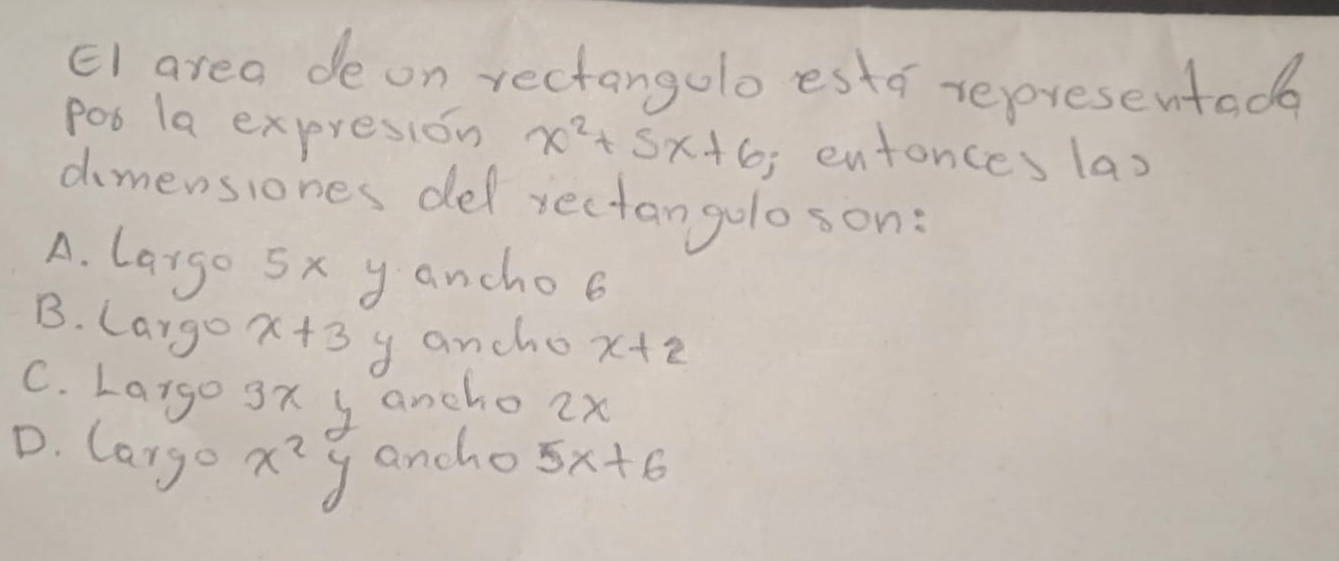 El area de un rectangulo está representada
por la expresión x²+5x+6; entonces las
dimensiones del rectangulo son:
A. Largo 5x y ancho 6
B. Largo x+3 y ancho x+2
C. Largo 3x y ancho 2x
D. Largo x² y ancho 5x+6